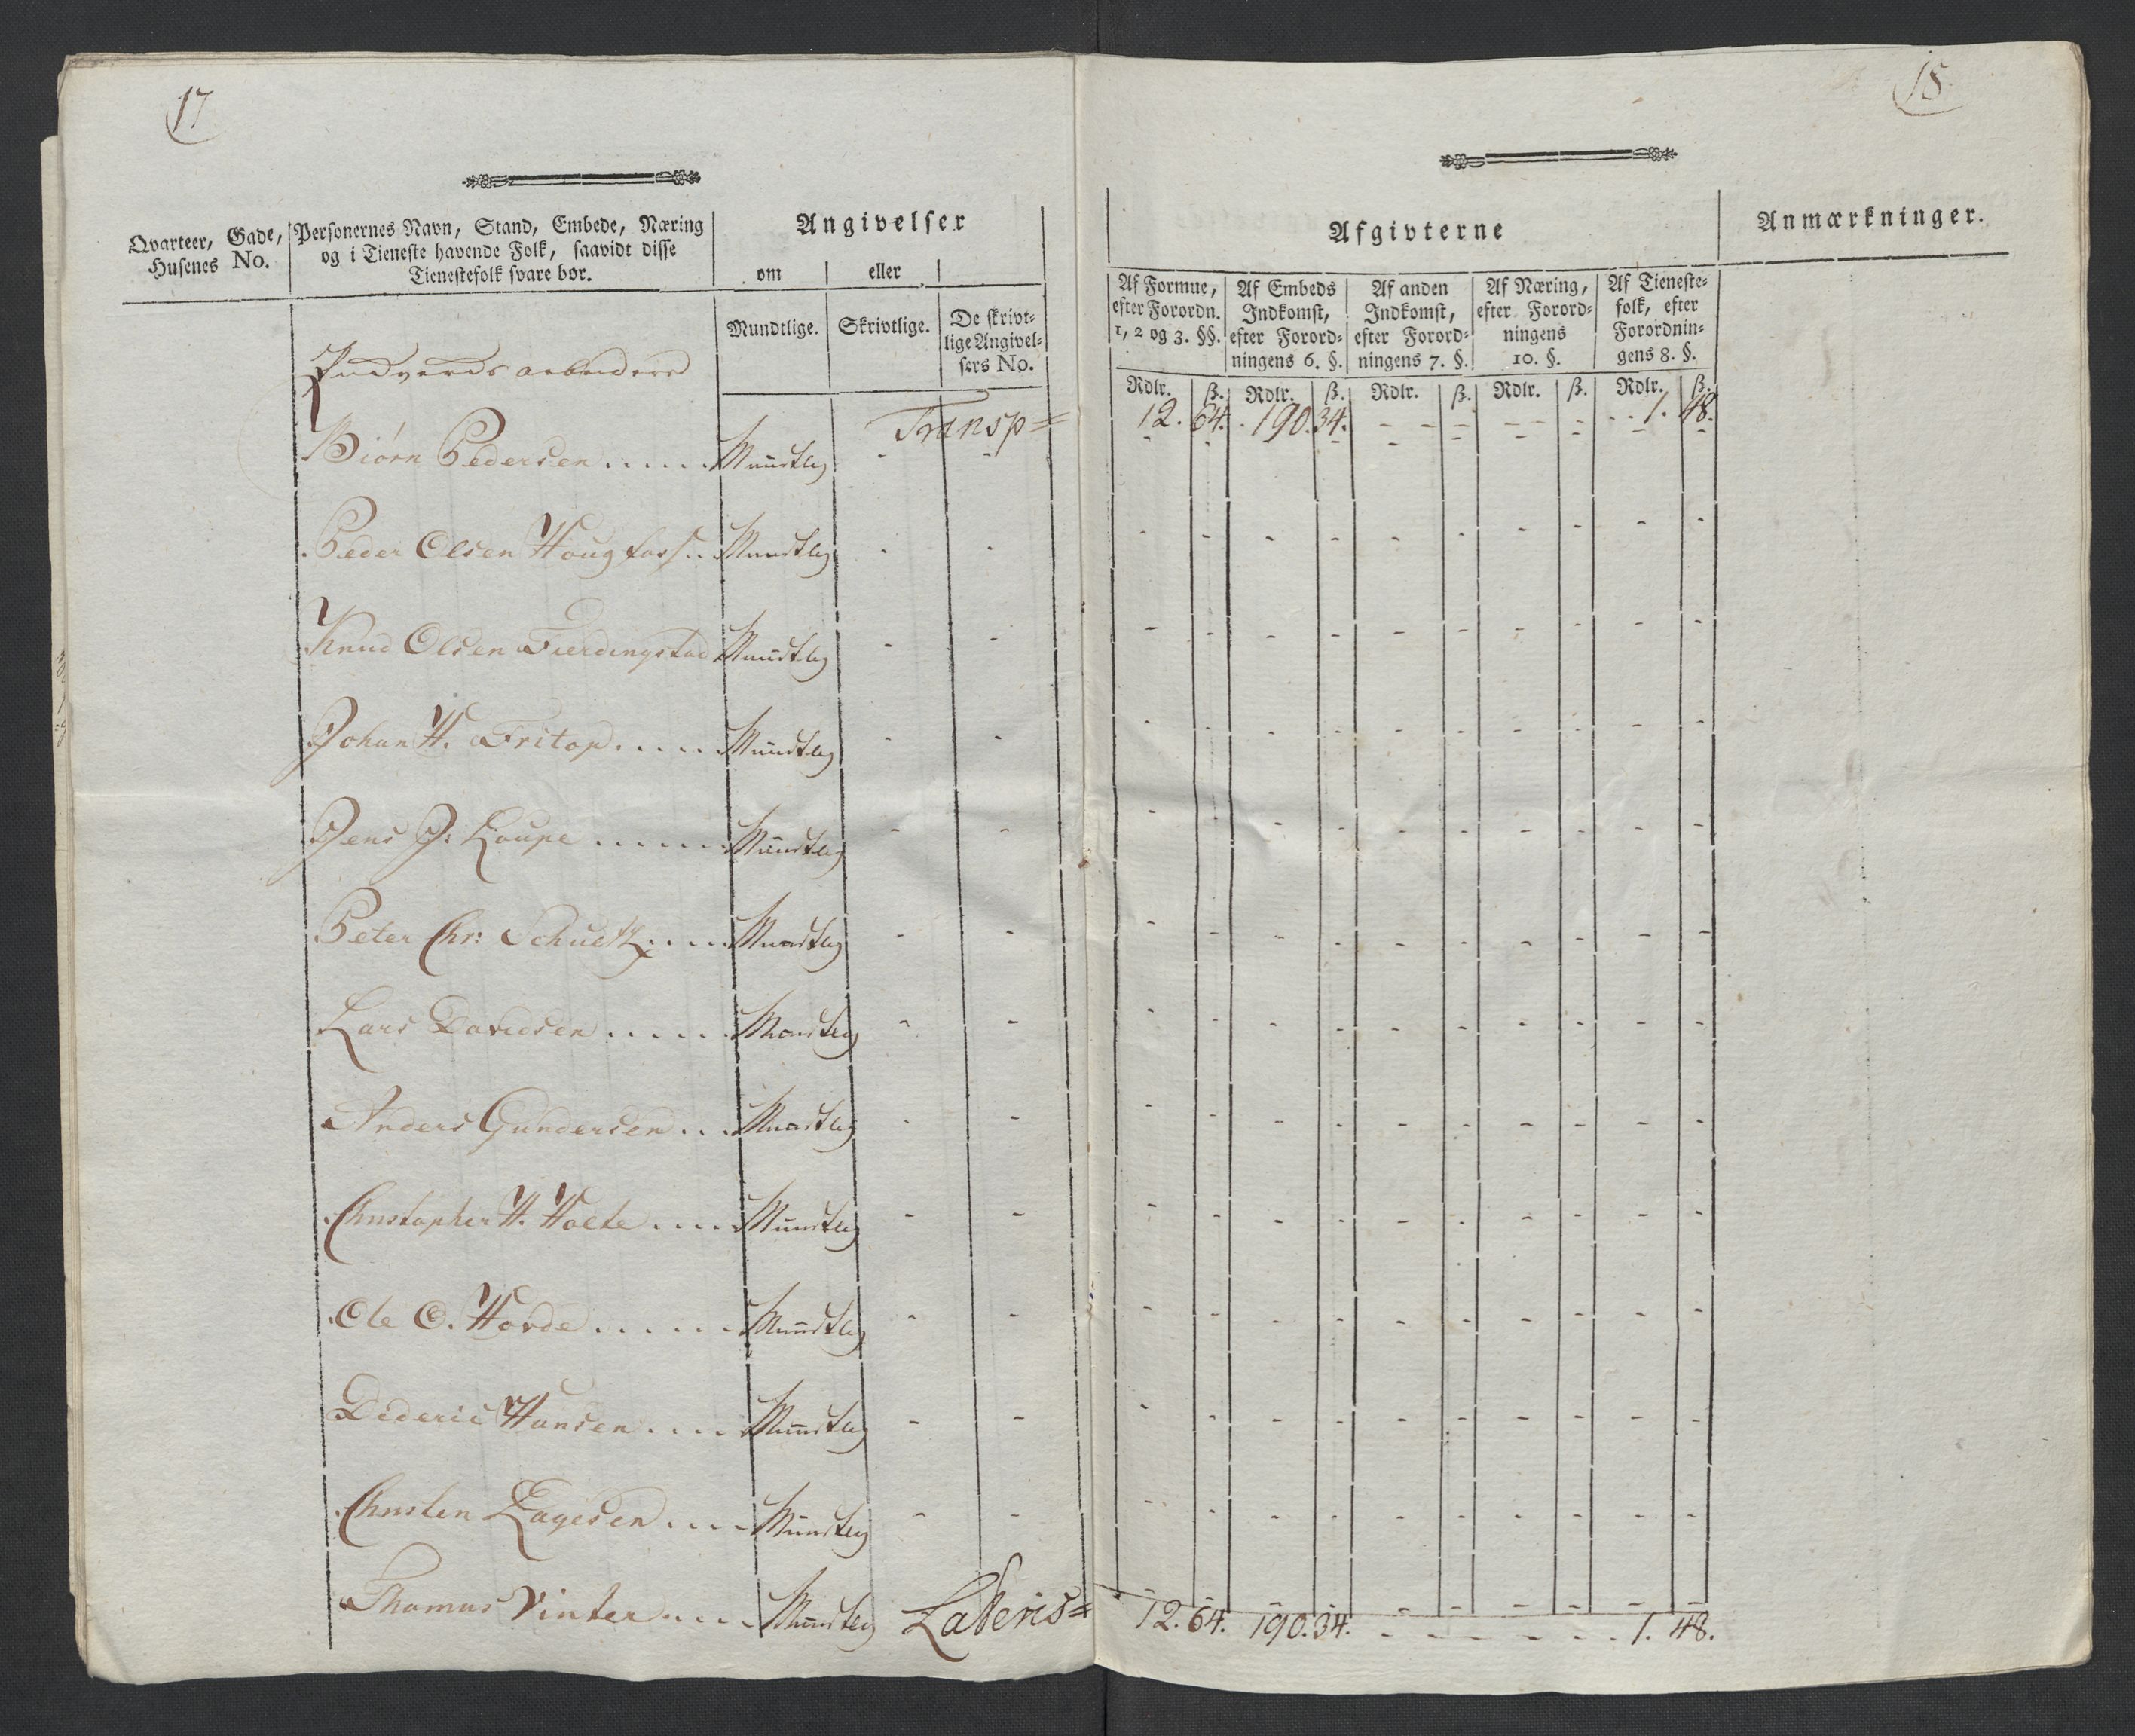 17
Qvarteer, Gade,
Husenes No.
Personernes Navn, Stand, Embede, Næring
og i Tieneste havende Folk, saavidt disse
Tienestefolk svare bør.
Angivelser
om eller
Mundtlige. Skrivtlige. De skrivt-
lige Angivel-
sers No.
arbeidere
Transp=
Biørn Pedersen . . . . . Mundtlig - -
Peder Olsen Hougfoss . . Mundtlig - -
Knud Olsen Fierdingstad Mundtlig - -
Johan H. Fritop . . . . . Mundtlig - -
Jens J: Koupe . . . . . . Mundtlig - -
Peter Chr: Schueltz . . . . Mundtlig - -
Lars Davidsen . . . . . Mundtlig - -
Anders Gundersen . . . Mundtlig - -
Christopher H. Holte . . . . Mundtlig - -
Ole O. Horde . . . . . . Mundtlig - -
Dideric Hansen . . . . Mundtlig - -
Christen Lagesen . . . . Mundtlig - -
Thomas Vinter . . . . Mundtlig
Lateris=
18.
Afgivterne
Anmærkninger.
Af Formue,
efter Forordn.
1, 2 og 3. §§.
Af Embeds
Indkomst,
efter Forord-
ningens 6. §.
Af anden
Indkomst,
efter Forord-
ningens 7. §.
Af Næring,
efter Forord-
ningens
10. §.
Af Tieneste-
folk, efter
Forordnin-
gens 8. §.
Rdlr. ß. Rdlr. ß. Rdlr. ß. Rdlr. ß. Rdlr. ß.
12. 64. 190. 34. - - - - - - 1. 48.
12. 64. 190. 34. - - - - - - 1. 48.